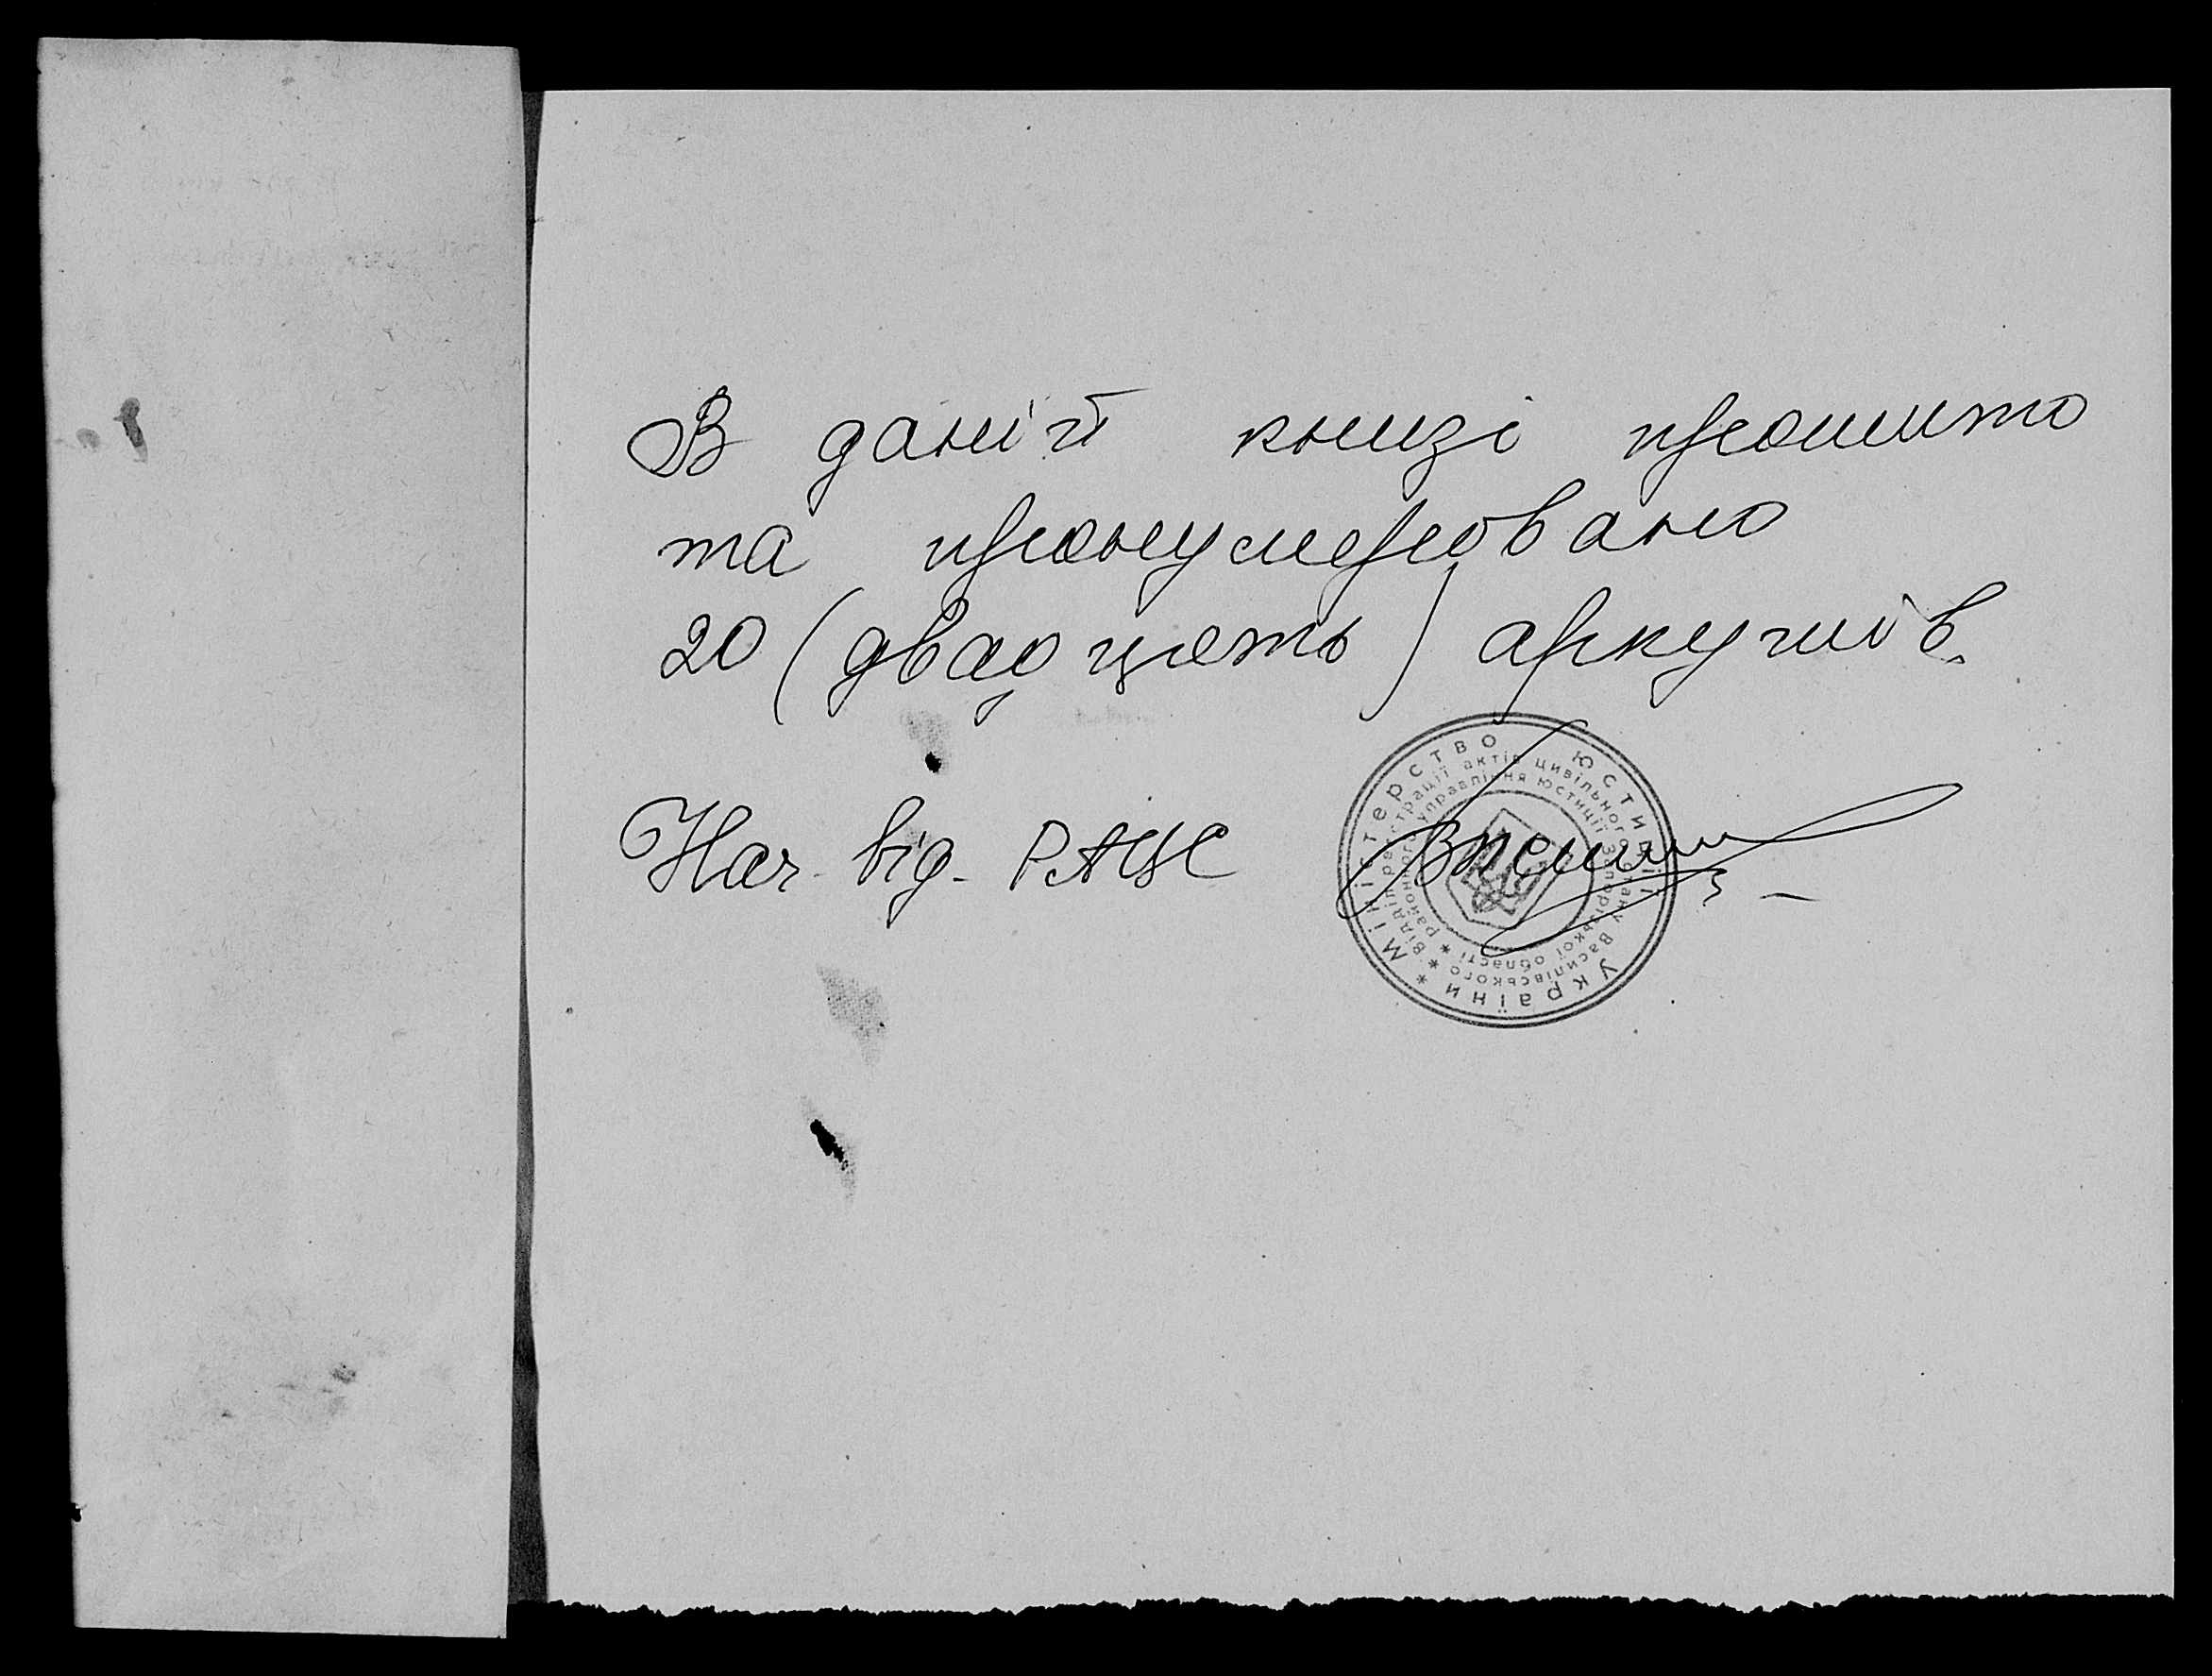 В даній книзі прошито
та пронумеровано
20 (двадцять) аркушів.
Нач. від. РАЦС
* Міністерство юстиції України *
Відділ реєстрації актів цивільного стану Василівського *
районного управління юстиції Запорізької області *